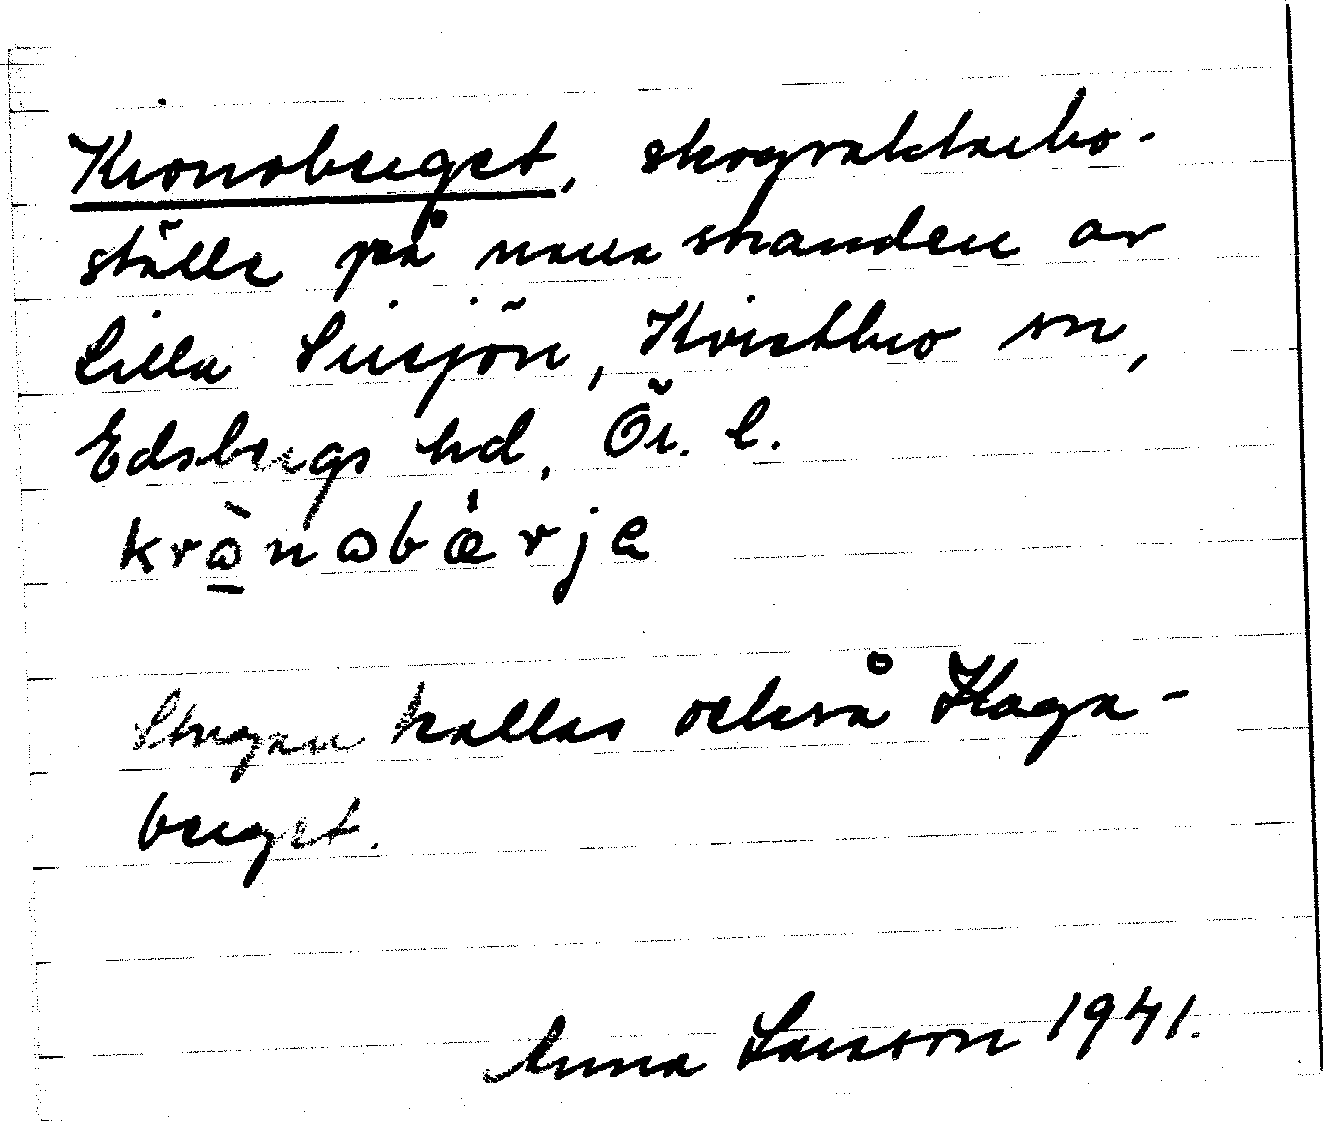 Kronoberget, skogvaktarbo-
ställe på norra stranden av
Lilla Sirsjön, Kvistbro sn,
Edsbergs hd, Ör. l.
krὼ̱nωbá̈rja
Stugan kallas också Haga-
berget.
Anna Larsson 1941.